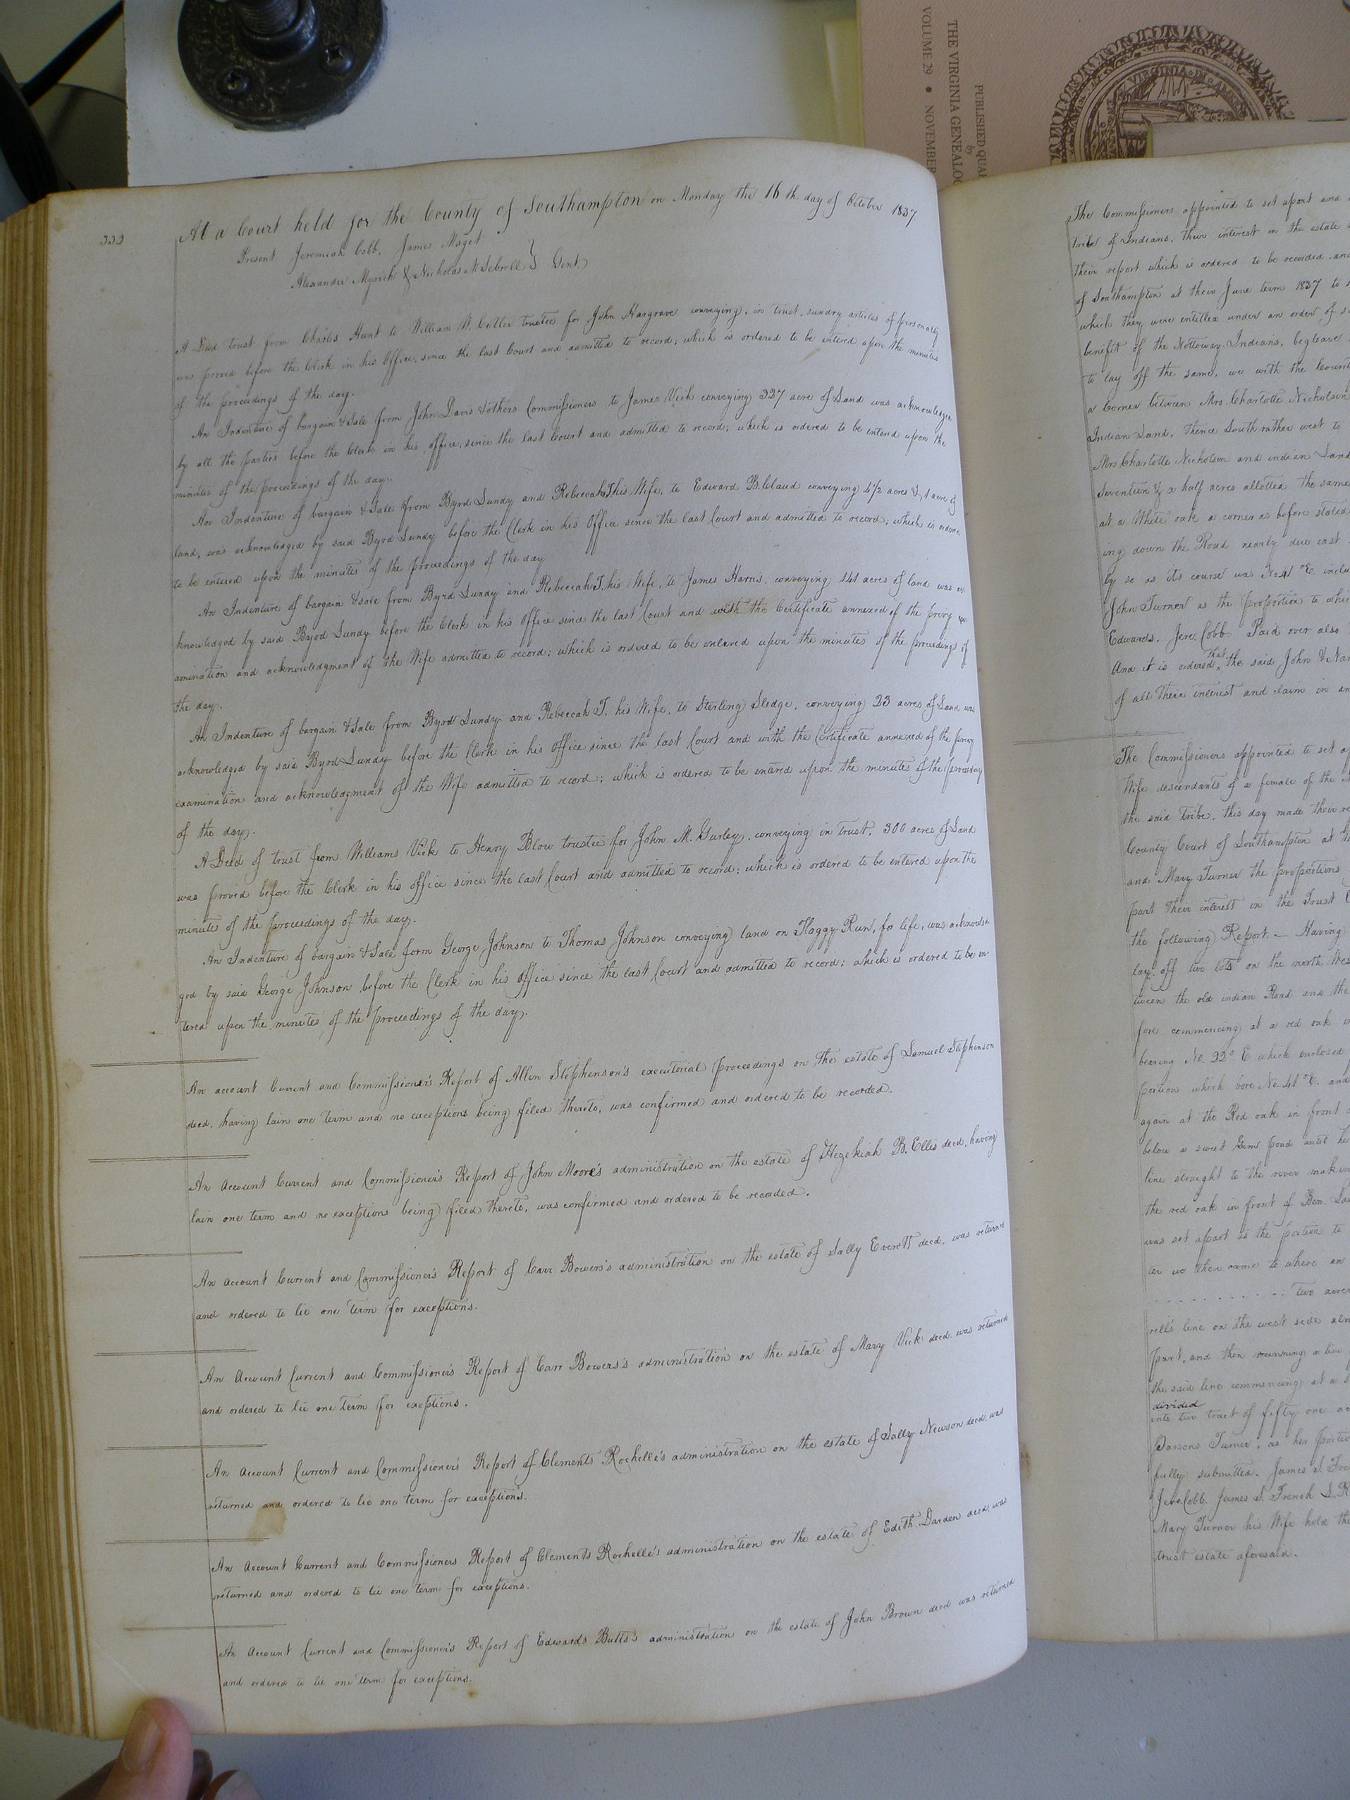 THE VIRGINIA GENEALOG
VOLUME 29 • NOVEMBER
PUBLISHED QUA
by
VIRGINIA
333
At a Court held for the County of Southampton on Monday the 16th day of October 1837
Present Jeremiah Cobb, James Maget
Alexander Myrick & Nicholas M Sebrell } Gent
A Deed trust from Charles Hunt to William W. Cotten trustee for John Hargrave conveying, in trust, sundry articles of personalty
was proved before the Clerk in his Office, since the last Court and admitted to record; which is ordered to be entered upon the minutes
of the proceedings of the day.
An Indenture of bargain & Sale from John Davis & others Commissioners to James Vick conveying 337 acre of Land was acknowledged
by all the parties before the Clerk in his office, since the last Court and admitted to record; which is ordered to be entered upon the
minutes of the proceedings of the day.
An Indenture of bargain & Sale from Byrd Lundy and Rebeccah T. his Wife, to Edward B. Claud conveying 4 1/2 acres & 1 acre of
land, was acknowledged by said Byrd Lundy before the Clerk in his Office since the last Court and admitted to record; which is ordered
to be entered upon the minutes of the proceedings of the day
An Indenture of bargain & sale from Byrd Lundy and Rebeccah T. his Wife, to James Harris, conveying 141 acres of land was ac
knowledged by said Byrd Lundy before the Clerk in his Office since the last Court and with the Certificate annexed of the privy ex
amination and acknowledgment of the Wife admitted to record; which is ordered to be entered upon the minutes of the proceedings of
the day.
An Indenture of bargain & Sale from Byrd Lundy and Rebeccah T. his Wife, to Sterling Sledge, conveying 23 acres of Land was
acknowledged by said Byrd Lundy before the Clerk in his office since the last Court and with the Certificate annexed of the privy
examination and acknowledgment of the Wife admitted to record; which is ordered to be entered upon the minutes of the proceedings
of the day.
A Deed of trust from Williams Vick to Henry Blow trustee for John M. Gurley, conveying in trust, 300 acres of Land
was proved before the Clerk in his office since the last Court and admitted to record; which is ordered to be entered upon the
minutes of the proceedings of the day.
An Indenture of bargain & Sale form George Johnson to Thomas Johnson conveying land on Flaggy Run, fo life, was acknowled
ged by said George Johnson before the Clerk in his office since the last Court and admitted to record; which is ordered to be en
tered upon the minutes of the proceedings of the day.
An account Current and Commissioner's Report of Allen Stephenson's executorial proceedings on the estate of Samuel Stephenson
decd. having lain one term and no exceptions being filed thereto, was confirmed and ordered to be recorded.
An Account Current and Commissioner's Report of John Moore's administration on the estate of Hezekiah B. Ellis decd, having
lain one term and no exceptions being filed thereto, was confirmed and ordered to be recorded.
An account Current and Commissioner's Report of Carr Bowers's administration on the estate of Sally Everett decd. was returned
and ordered to lie one term for exceptions.
An Account Current and Commissioner's Report of Carr Bowers's administration on the estate of Mary Vick decd. was returned
and ordered to lie one term for exceptions.
An Account Current and Commissioner's Report of Clements Rochelle's administration on the estate of Sally Newsom decd. was
returned and ordered to lie one term for exceptions.
An Account Current and Commissioners Report of Clements Rochelle's administration on the estate of Edith Darden decd. was
returned and ordered to lie one term for exceptions.
An Account Current and Commissioner's Report of Edwards Butts's administration on the estate of John Brown decd was returned
and ordered to lie one term for exceptions.
The Commissioners appointed to set apart and
tribe of Indians, their interest in the estate
their report which is ordered to be recorded and
of Southampton at their June term 1837 to
which they were entitled under an order of
benifit of the Nottoway Indians, beg leave
to lay off the same, we with the County
a corner between Mrs. Charlotte Nicholson
Indian Land, thence South rather west to
Mrs Charlotte Nicholson and indian Land
Seventeen & a half acres allotted the same
at a White oak a corner as before stated
ing down the Road nearly due east
by so as its course was No. 41° E. inclu
John Turner as the proportion to which
Edwards. Jere. Cobb. Paid over also
And it is ordered that the said John & Nan
of all their interest and claim in an
The Commissioners appointed to set a
Wife descendants of a female of the
the said Tribe, this day made their re
County Court of Southampton at
and Mary Turner the proportions
part their interest in the Trust
the following Report. — Having
lay off two lots on the north Wes
tween the old indian Road and the
fore commencing at a red oak
bearing No. 22° E which enclosed
portion which bore No. 41° E. and
again at the Red oak in front
below a sweet Gum pond until
line straight to the river makin
the red oak in front of Ben. La
was set apart as the portion to
as we then came to where an
two acres
rell's line on the west side
part, and then running a line
the said line commencing at a
divided
into two tract of fifty one ac
Parsons Turner, as her portio
fully submitted. James S. Fre
Jere Cobb. James S. French
Mary Turner his Wife hold the
trust estate aforesaid.